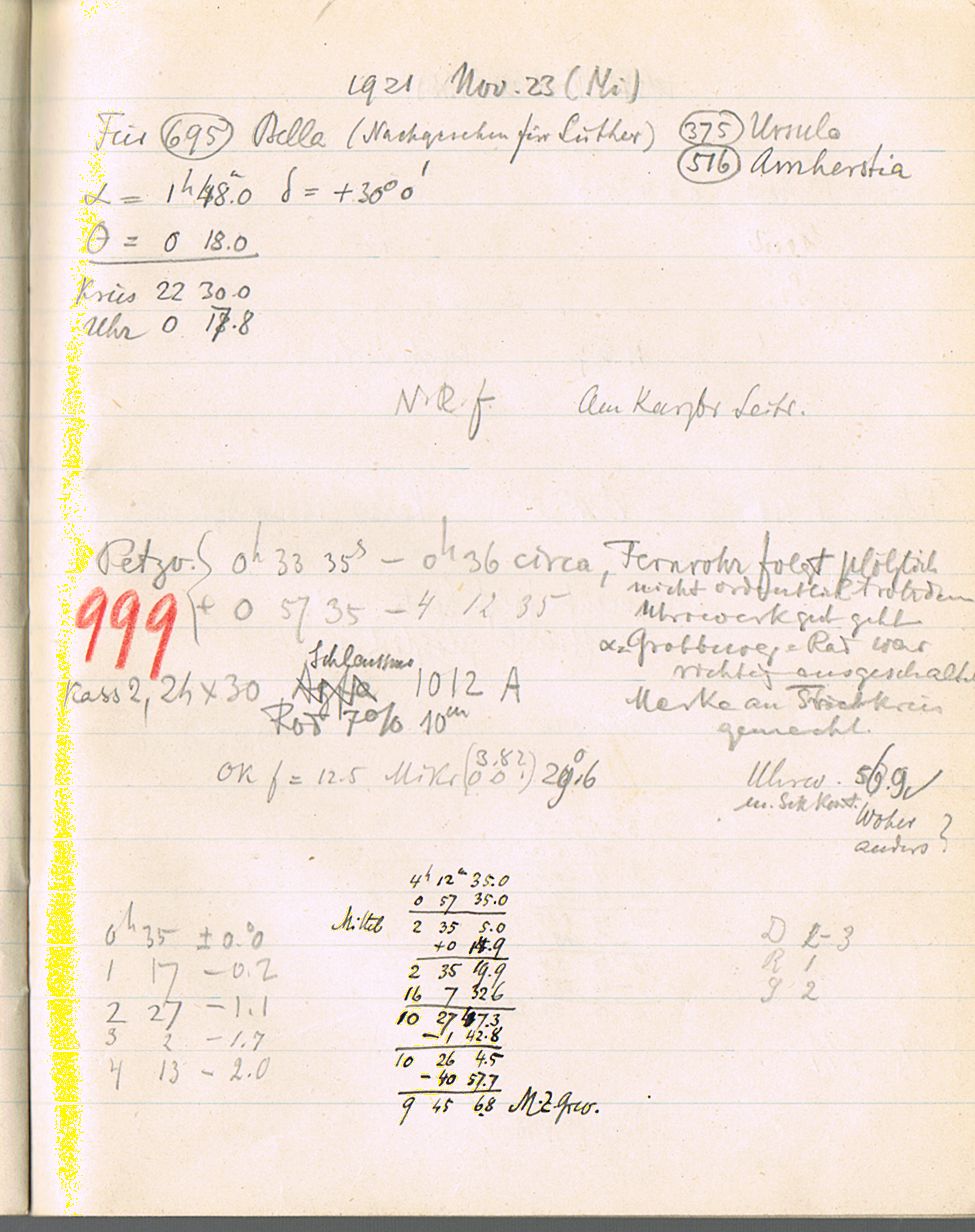 1921 Nov. 23 (Mi)
Für 695 Bella (Nachgesehen für Luther) 375 Ursula
516 Amherstia
α = 1h 48.0 δ = +30° 0'
θ = 0 18.0
Kreis 22 30.0
Uhr 0 17.8
N. R. f. Am
Petzv. { 0h 33 35s – 0h 36 circa, Fernrohr folgt plötzlich
nicht ordentlich trotzdem
999 + 0 57 35 – 4 12 35
Uhrwerk gut geht
α Rad war
richtig ausgeschaltet
Kass 2, 24 x 30 Schleussner 1012 A
Rod 7% 10m
Marke an Kreis
gemacht.
OK f = 12.5 Mikr (3.82) 29°.6
Uhrw. 56.9
m. Sek Kont.
Woher
anders ?
4h 12m 35.0
0 57 35.0
Mittel 2 35 5.0
+0 14.9
2 35 19.9
16 7 32.6
10 27 47.3
–1 42.8
10 26 4.5
–40 57.7
9 45 6.8 M.Z. Grw.
0h 35 ±0.°0
1 17 –0.2
2 27 –1.1
3 2 –1.7
4 13 –2.0
D 2-3
R 1
g 2